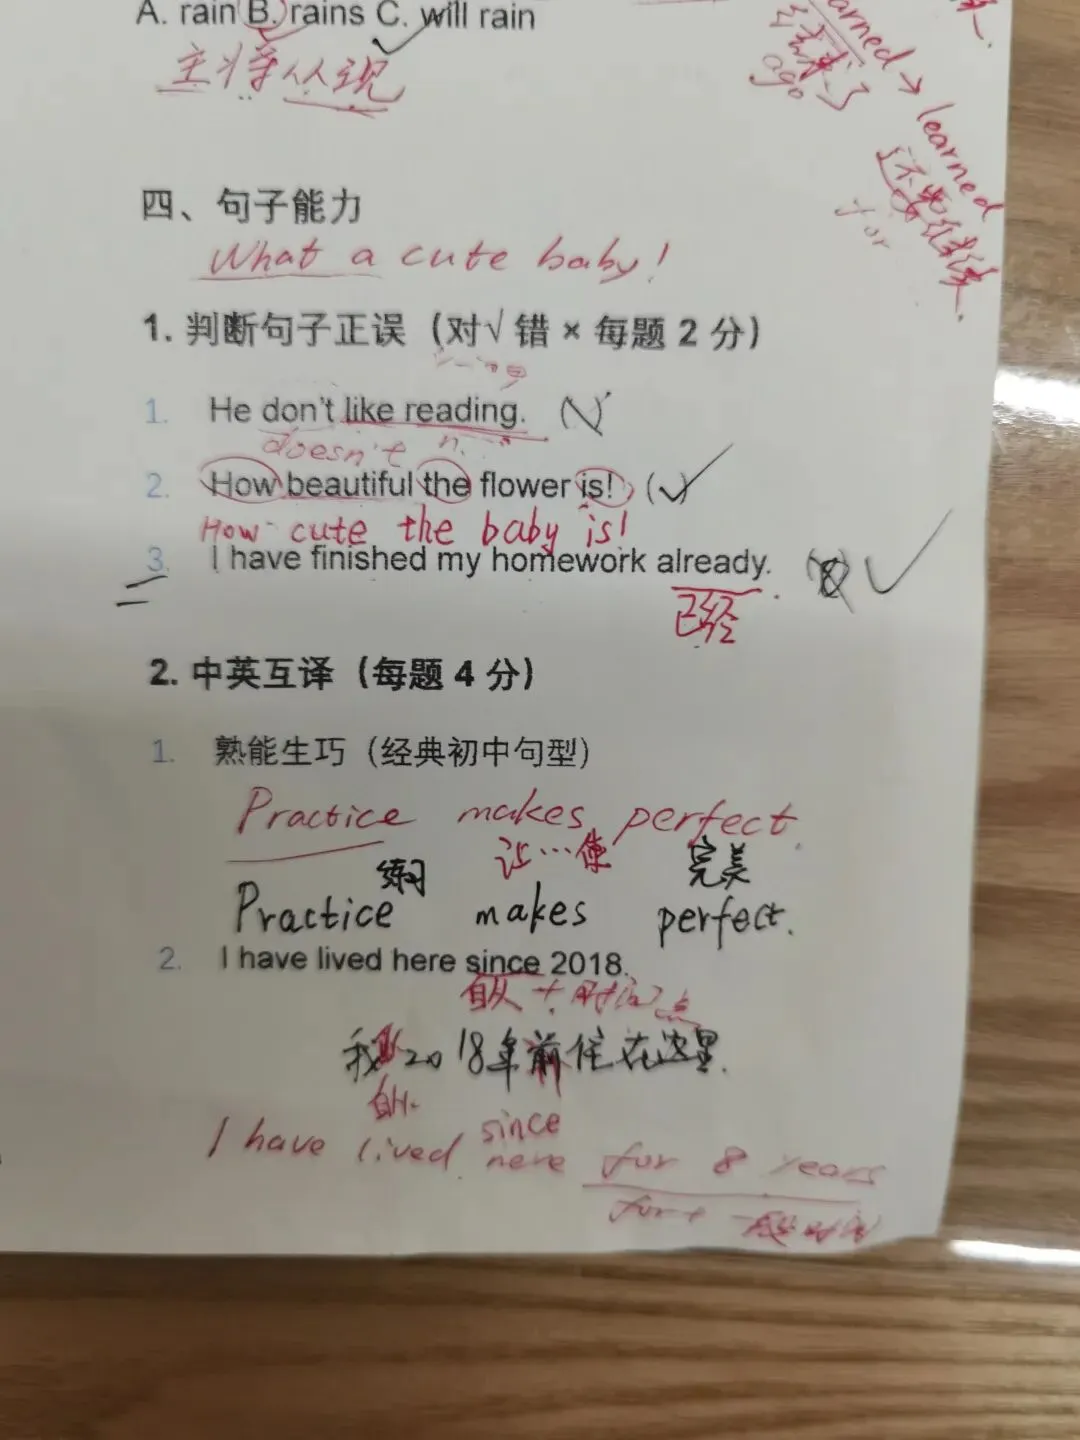 A. rain B. rains C. will rain
主将从现
learned → learned
ago
for
四、句子能力
What a cute baby!
1. 判断句子正误（对√ 错 × 每题 2 分）
1. He don't like reading. (
doesn't
2. How beautiful the flower is! (✓)
How cute the baby is!
3. I have finished my homework already.
已经
2. 中英互译（每题 4 分）
1. 熟能生巧（经典初中句型）
Practice makes perfect.
练习 让…使 完美
Practice makes perfect.
2. I have lived here since 2018.
自从 + 时间点
我 2018年前住在这里.
自从
since
I have lived here for 8 years
for + 一段时间